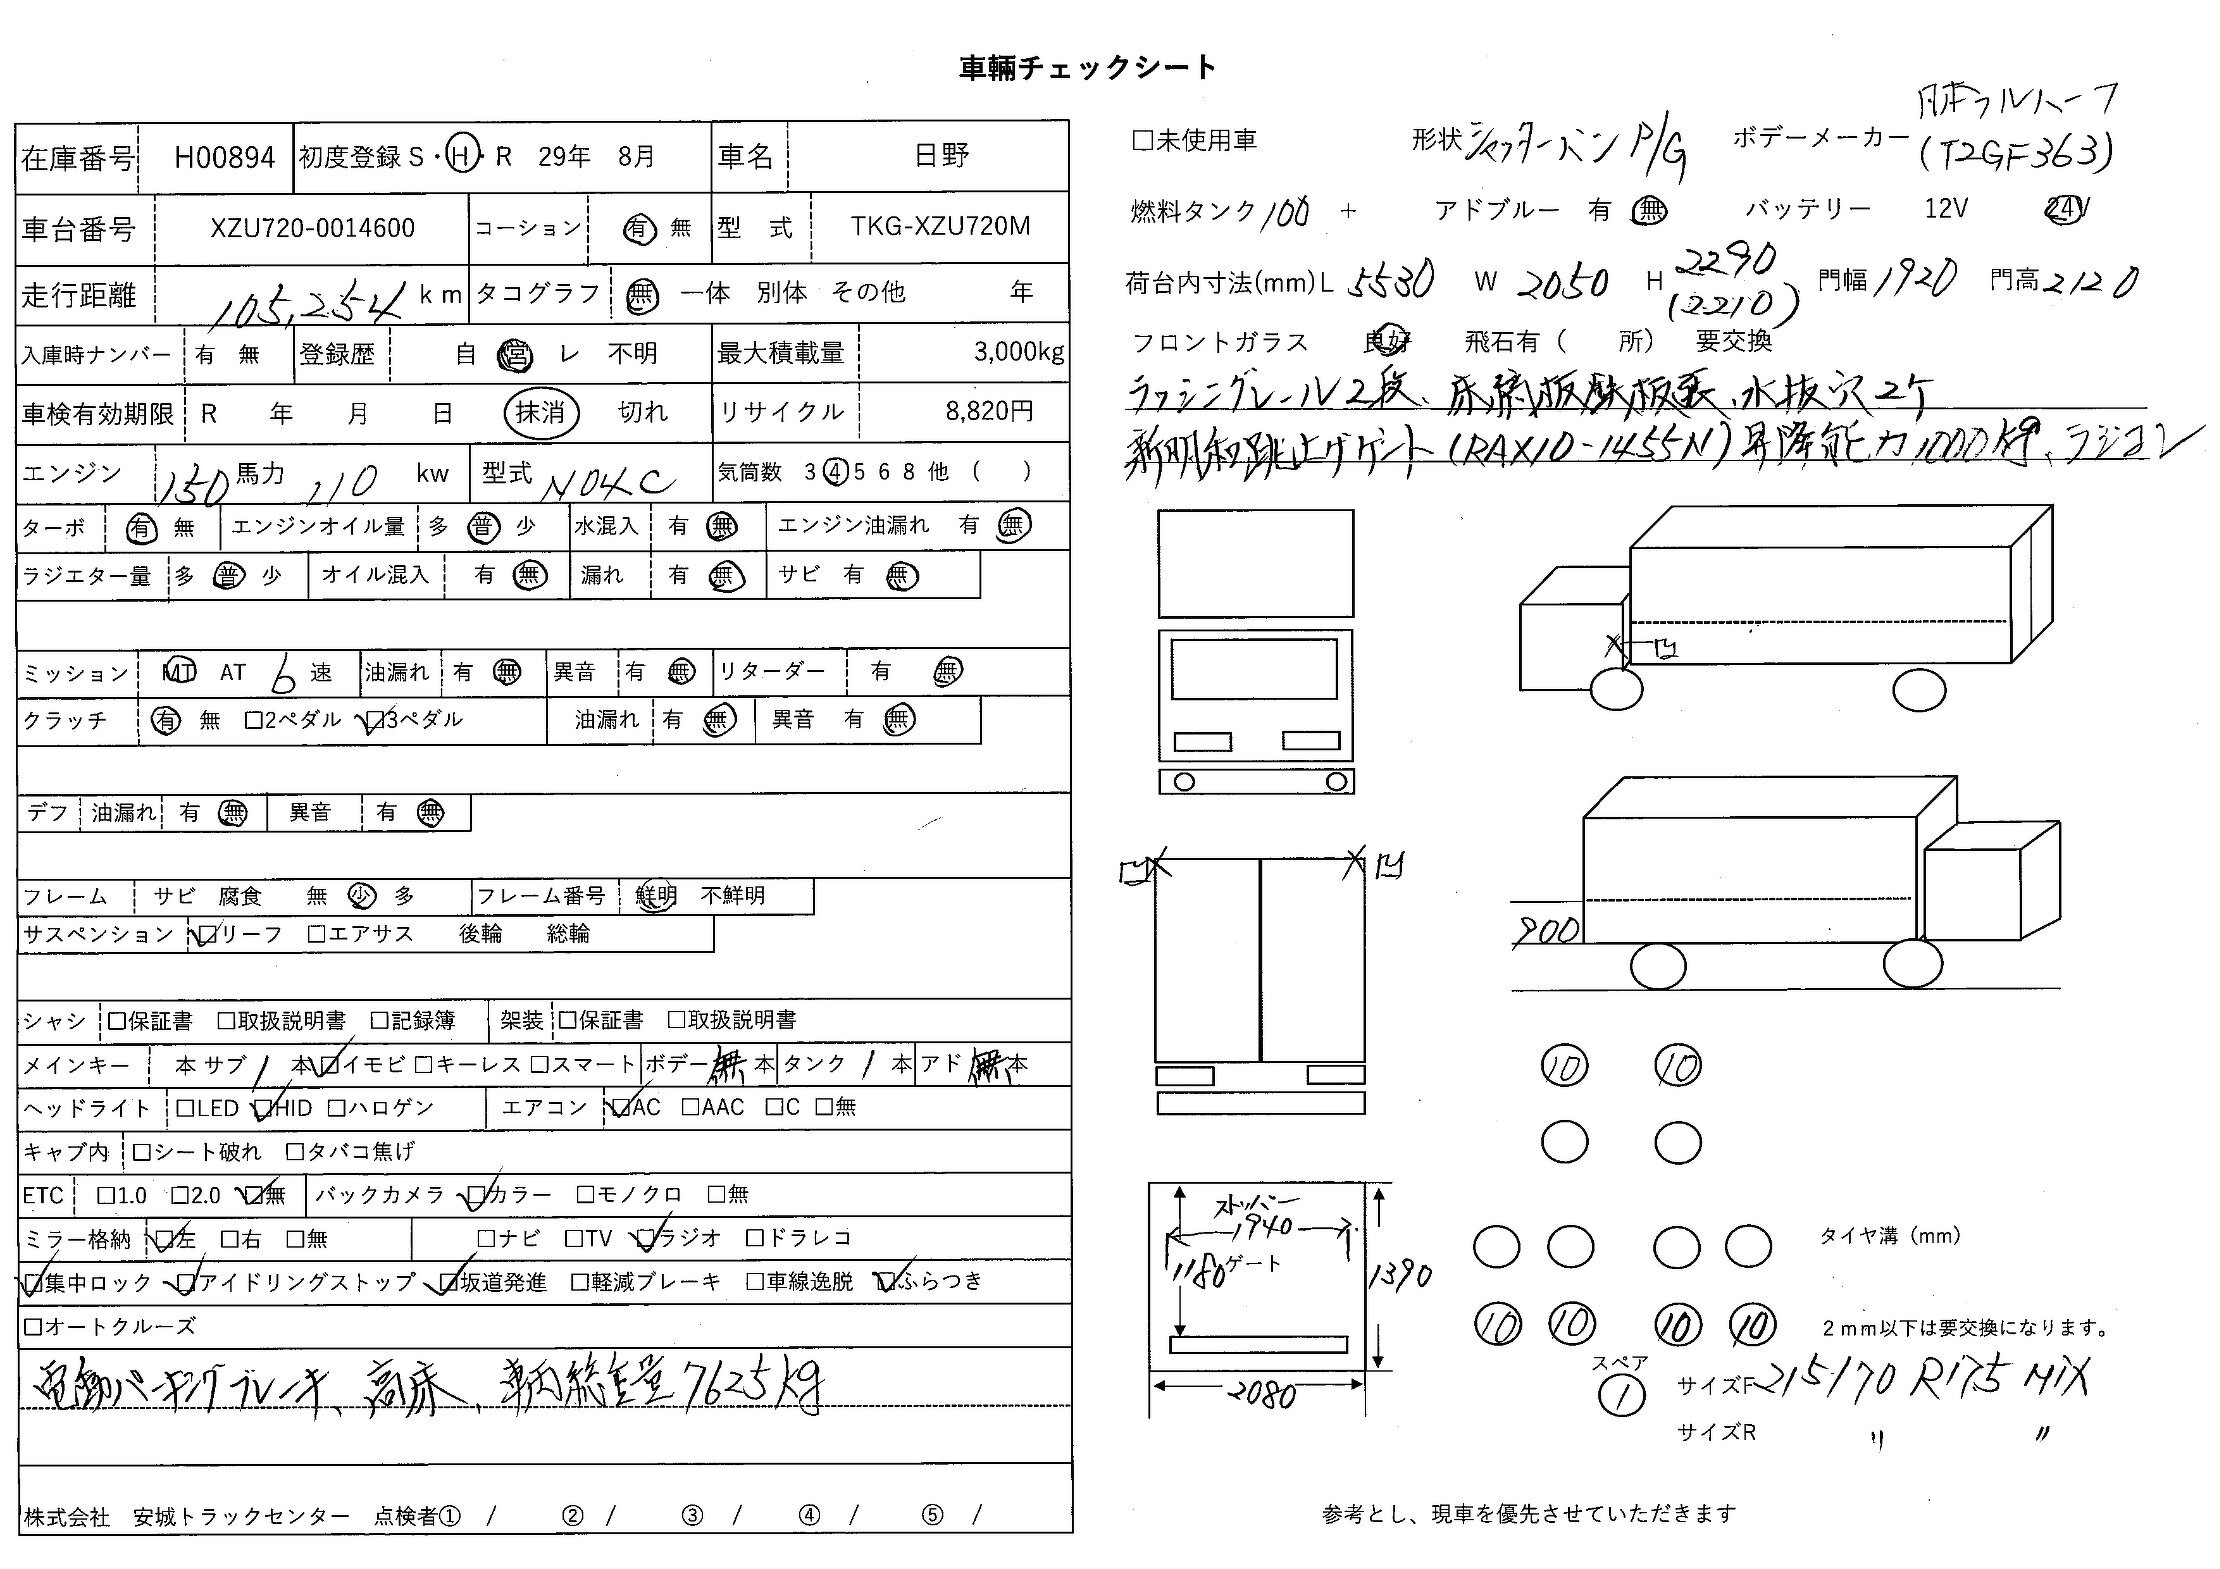 車輛チェックシート
在庫番号 H00894 初度登録 S・H・R 29年 8月 車名 日野
車台番号 XZU720-0014600 コーション 有 無 型 式 TKG-XZU720M
走行距離 105,254 km タコグラフ 無 一体 別体 その他 年
入庫時ナンバー 有 無 登録歴 自 営 レ 不明 最大積載量 3,000kg
車検有効期限 R 年 月 日 抹消 切れ リサイクル 8,820円
エンジン 150 馬力 110 kw 型式 N04C 気筒数 3 4 5 6 8 他 ( )
ターボ 有 無 エンジンオイル量 多 普 少 水混入 有 無 エンジン油漏れ 有 無
ラジエター量 多 普 少 オイル混入 有 無 漏れ 有 無 サビ 有 無
ミッション MT AT 6 速 油漏れ 有 無 異音 有 無 リターダー 有 無
クラッチ 有 無 □2ペダル ☑3ペダル 油漏れ 有 無 異音 有 無
デフ 油漏れ 有 無 異音 有 無
フレーム サビ 腐食 無 少 多 フレーム番号 鮮明 不鮮明
サスペンション ☑リーフ □エアサス 後輪 総輪
シャシ □保証書 □取扱説明書 □記録簿 架装 □保証書 □取扱説明書
メインキー 本 サブ 1 本 ☑イモビ □キーレス □スマート ボデー 無 本 タンク 1 本 アド 無 本
ヘッドライト □LED ☑HID □ハロゲン エアコン ☑AC □AAC □C □無
キャブ内 □シート破れ □タバコ焦げ
ETC □1.0 □2.0 ☑無 バックカメラ ☑カラー □モノクロ □無
ミラー格納 ☑左 □右 □無 □ナビ □TV ☑ラジオ □ドラレコ
☑集中ロック ☑アイドリングストップ ☑坂道発進 □軽減ブレーキ □車線逸脱 ☑ふらつき
□オートクルーズ
電動パーキングブレーキ、高床、車両総重量7625kg
株式会社 安城トラックセンター 点検者① / ② / ③ / ④ / ⑤ /
□未使用車 形状 シャッターバン P/G ボデーメーカー 日本フルハーフ
(T2GF363)
燃料タンク 100 + アドブルー 有 無 バッテリー 12V 24V
荷台内寸法(mm) L 5530 W 2050 H 2290 (2210) 門幅 1920 門高 2120
フロントガラス 良好 飛石有 ( 所) 要交換
ラッシングレール2段、床縞板鉄板張、水抜穴2ケ
新明和跳上げゲート(RAX10-1455N)昇降能力1000kg、ラジコン
凹
凹 凹
900
10 10
ストッパー
1940
1180 ゲート
1390
2080
タイヤ溝（mm）
10 10 10 10
2mm以下は要交換になります。
スペア
1
サイズF 215/70 R17.5 MIX
サイズR 〃 〃
参考とし、現車を優先させていただきます